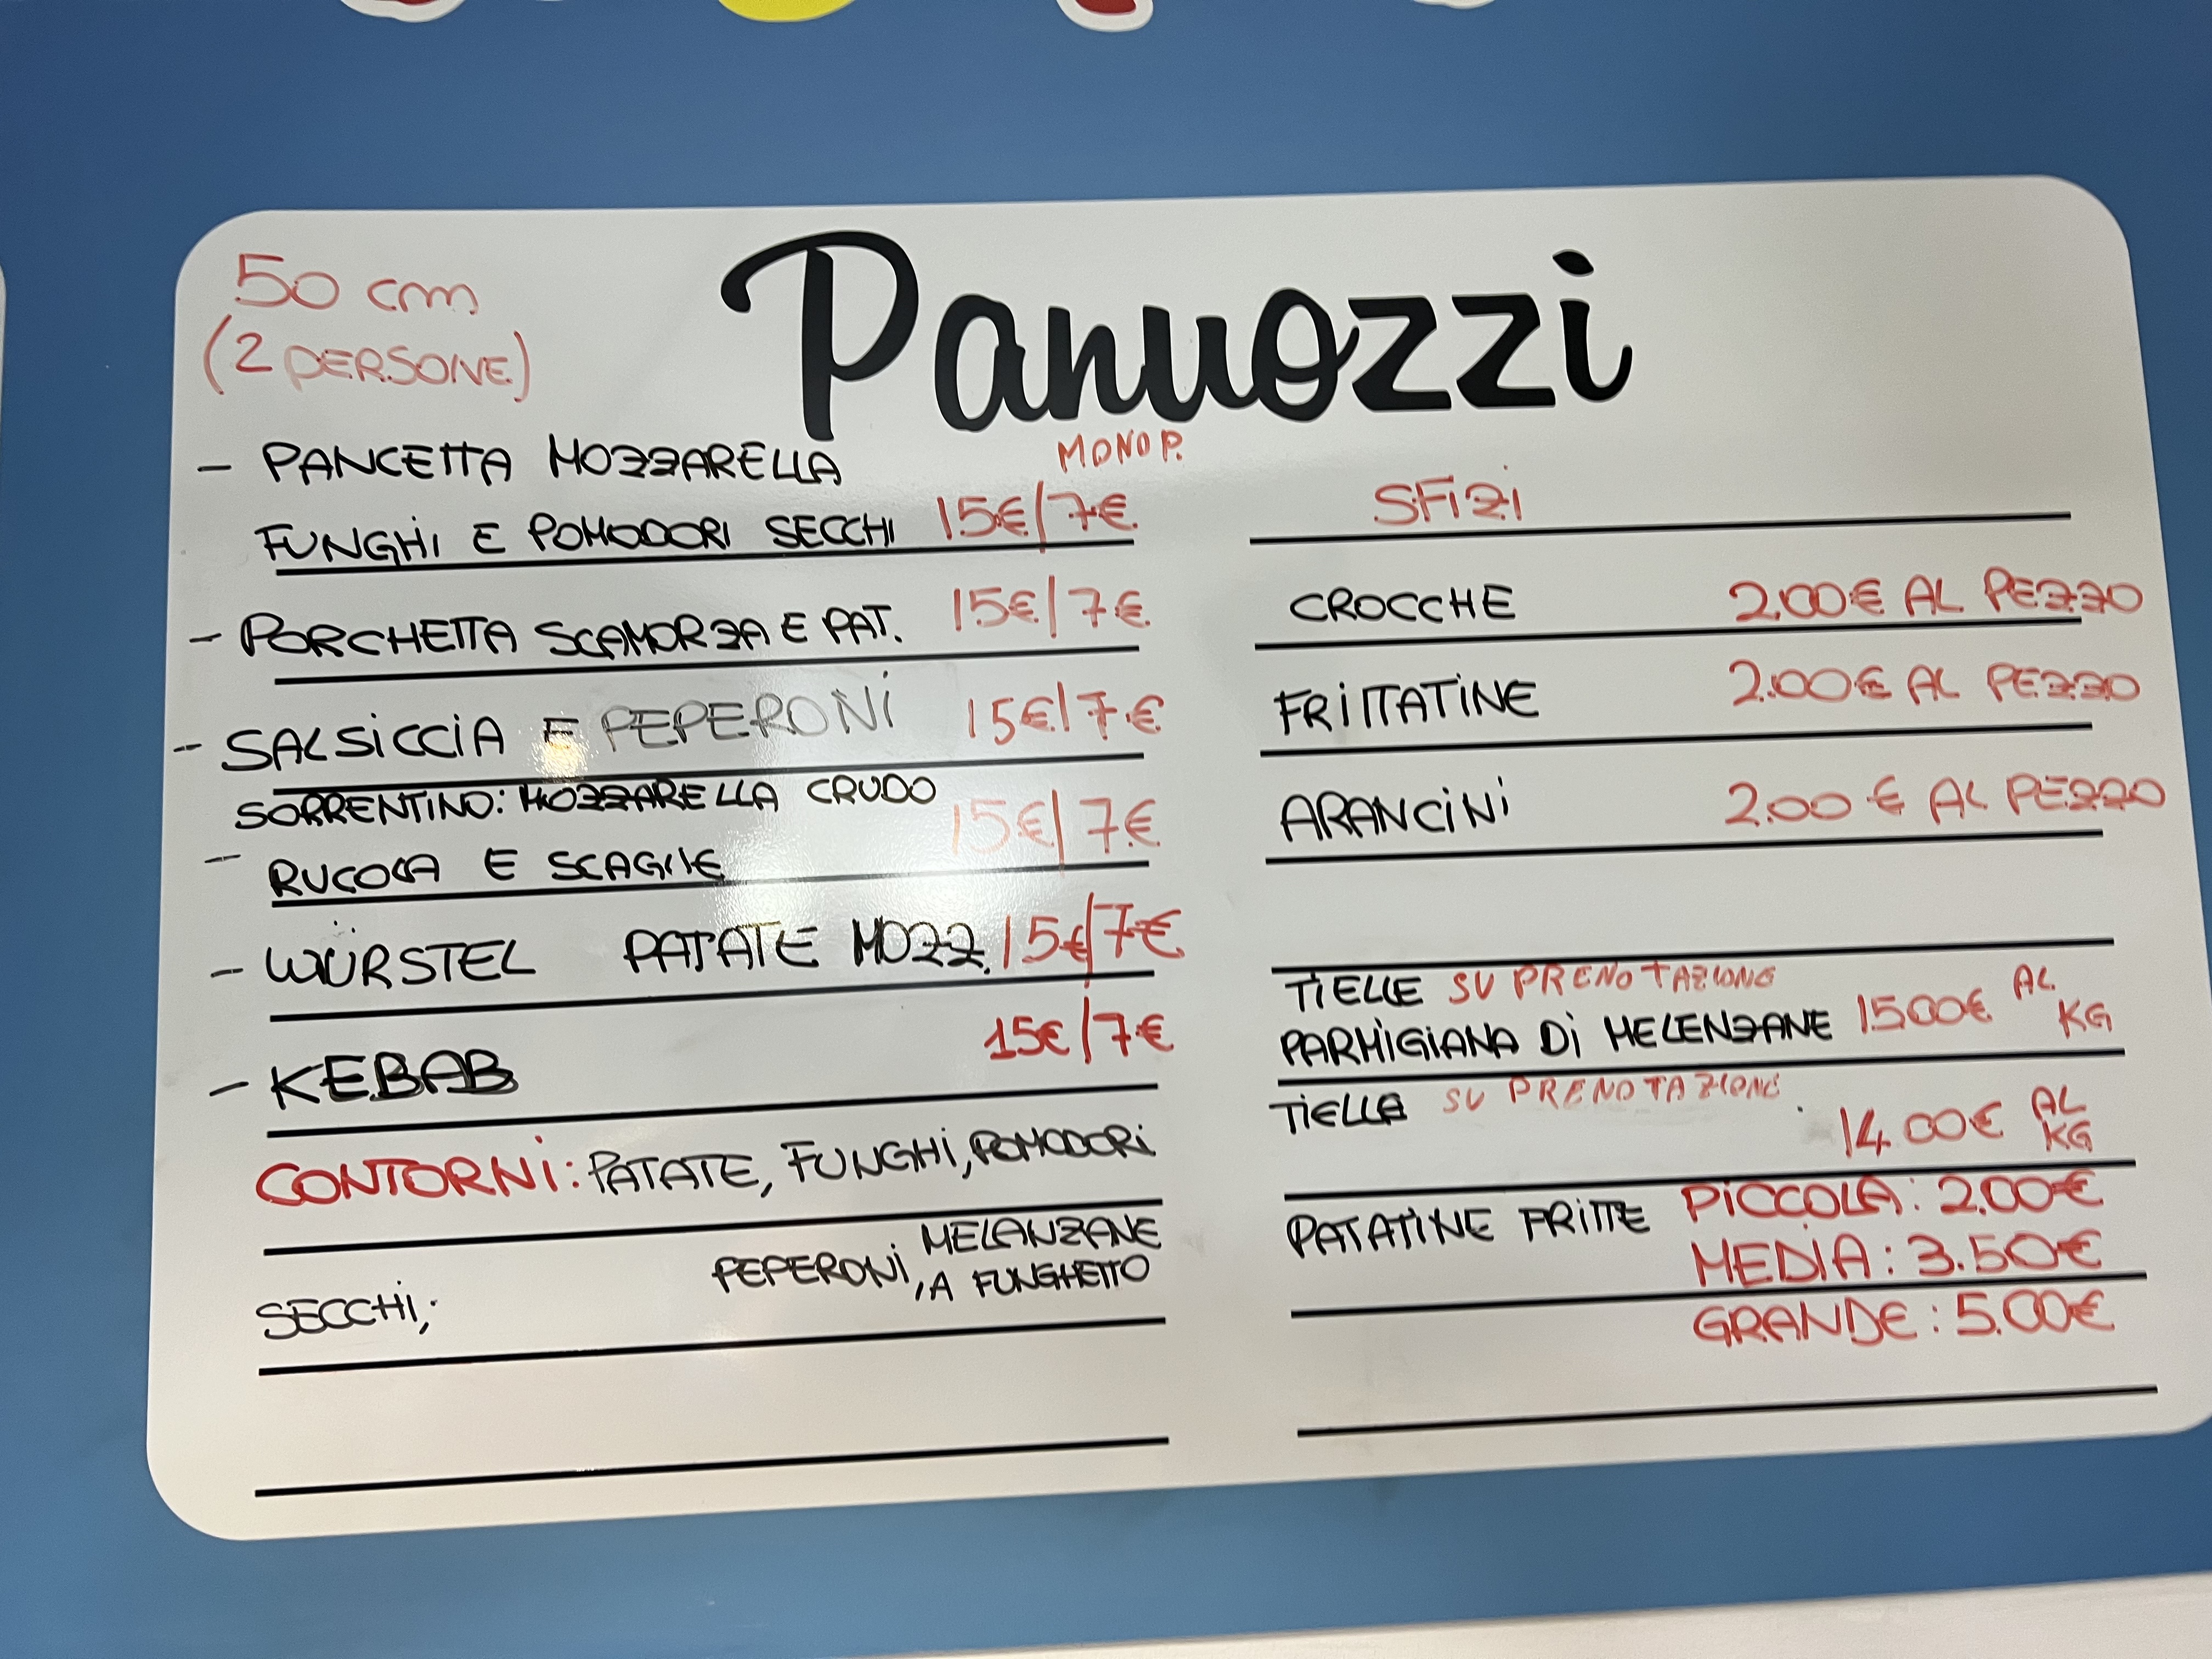 50 cm
(2 PERSONE)
Panuozzi
MONO P.
- PANCETTA MOZZARELLA
FUNGHI E POMODORI SECCHI 15€/7€
- PORCHETTA SCAMORZA E PAT. 15€/7€
- SALSICCIA E PEPERONI 15€/7€
SORRENTINO: MOZZARELLA CRUDO
- RUCOLA E SCAGLIE 15€/7€
- WÜRSTEL PATATE MOZZ. 15€/7€
- KEBAB 15€/7€
CONTORNI: PATATE, FUNGHI, POMODORI
SECCHI; PEPERONI, MELANZANE
A FUNGHETTO
SFIZI
CROCCHE 2.00€ AL PEZZO
FRITTATINE 2.00€ AL PEZZO
ARANCINI 2.00€ AL PEZZO
TIELLE SU PRENOTAZIONE
PARMIGIANA DI MELENZANE 15.00€ AL KG
TIELLA SU PRENOTAZIONE.
14.00€ AL KG
PATATINE FRITTE PICCOLA: 2.00€
MEDIA: 3.50€
GRANDE: 5.00€